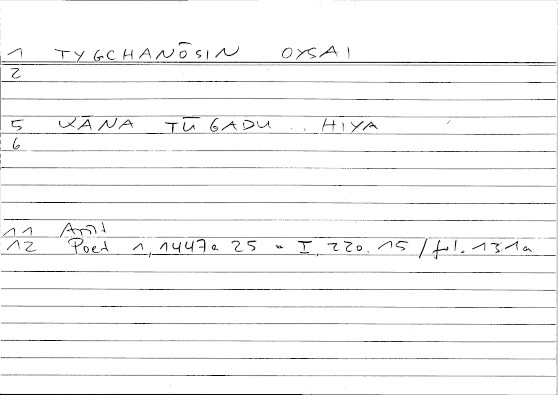 1 TYGCHANŌSIN OYSAI
2
5 KĀNA TŪGADU .. HIYA
6
11 Arist
12 Poet 1, 1447a 25 = I, 220. 15 / fol. 131a